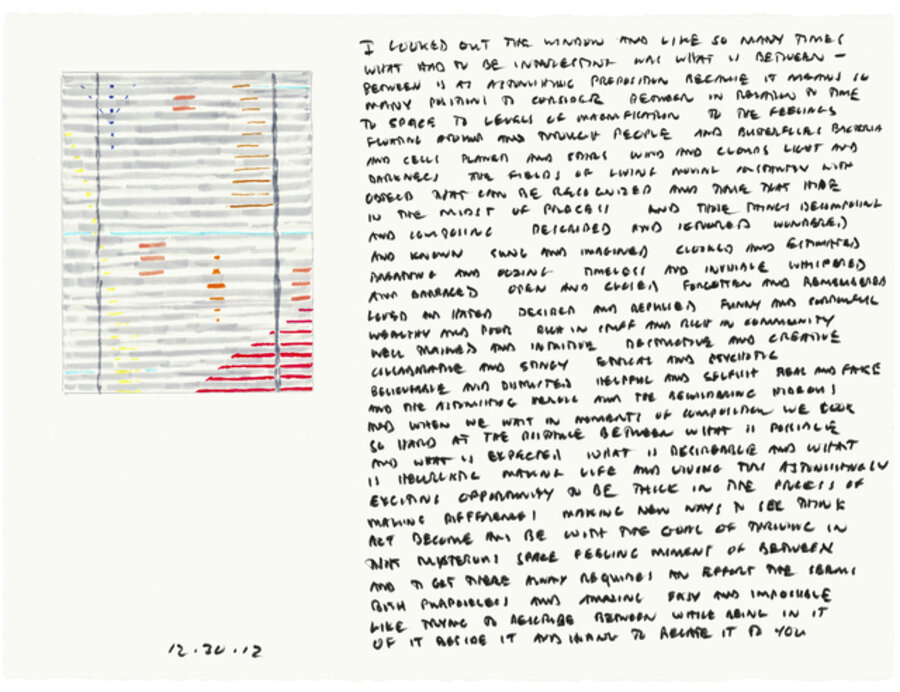 I LOOKED OUT THE WINDOW AND LIKE SO MANY TIMES
WHAT HAD TO BE INTERESTING WAS WHAT IS BETWEEN –
BETWEEN IS AN ASTONISHING PREPOSITION BECAUSE IT MEANS SO
MANY POSITIONS TO CONSIDER BETWEEN IN RELATION TO TIME
TO SPACE TO LEVELS OF MAGNIFICATION TO THE FEELINGS
FLOATING AROUND AND THROUGH PEOPLE AND BUTTERFLIES BACTERIA
AND CELLS PLANETS AND STARS WIND AND CLOUDS LIGHT AND
DARKNESS THE FIELDS OF LIVING MOVING CONSTANTLY WITH
OBJECTS THAT CAN BE RECOGNIZED AND THOSE THAT HIDE
IN THE MIDST OF PROCESS AND THOSE THINGS DECOMPOSING
AND COMPOSING DESCRIBED AND IGNORED WONDERED
AND KNOWN SUNG AND IMAGINED CLOCKED AND ESTIMATED
AND OOZING TIMELESS AND INVISIBLE WHISPERED
AND BARRAGED OPEN AND CLOSED FORGOTTEN AND REMEMBERED
LOVED AND HATED DESIRED AND REPULSED FUNNY AND SORROWFUL
WEALTHY AND POOR RICH IN STUFF AND RICH IN COMMUNITY
WELL TRAINED AND INTUITIVE DESTRUCTIVE AND CREATIVE
COLLABORATIVE AND STINGY ETHICAL AND PSYCHOTIC
BELIEVABLE AND DISTRUSTED HELPFUL AND SELFISH REAL AND FAKE
AND THE ASTONISHING HEROIC AND THE BEWILDERING HIDEOUS
AND WHEN WE WAIT IN MOMENTS OF COMPOSITION WE LOOK
SO HARD AT THE DISTANCE BETWEEN WHAT IS POSSIBLE
AND WHAT IS EXPECTED WHAT IS DESIREABLE AND WHAT
IS HEURISTIC MAKING LIFE AND LIVING THIS ASTONISHINGLY
EXCITING OPPORTUNITY TO BE THICK IN THE PROCESS OF
MAKING DIFFERENCES MAKING NEW WAYS TO SEE THINK
ACT BECOME AND BE WITH THE GOAL OF THRIVING IN
THIS MYSTERIOUS SPACE FEELING MOMENT OF BETWEEN
AND TO GET THERE ALWAY REQUIRES AN EFFORT THAT SEEMS
BOTH PURPOSELESS AND AMAZING EASY AND IMPOSSIBLE
LIKE TRYING TO DESCRIBE BETWEEN WHILE BEING IN IT
OF IT BESIDE IT AND WANT TO RELATE IT TO YOU
12.30.12